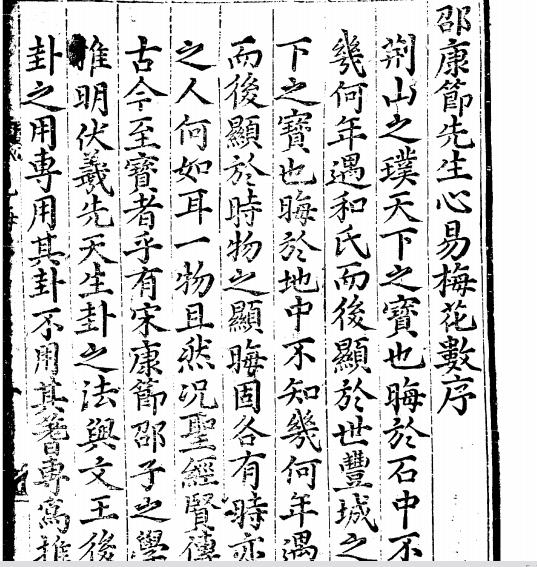 邵康節先生心易梅花數序
荆山之璞天下之寶也晦於石中不
幾何年遇和氏而後顯於世豐城之
下之寶也晦於地中不知幾何年遇
而後顯於時物之顯晦固各有時亦
之人何如耳一物且然况聖經賢傳
古今至寶者乎有宋康節邵子之學
推明伏羲先天生卦之法與文王後
卦之用專用其卦不用其蓍專寫推